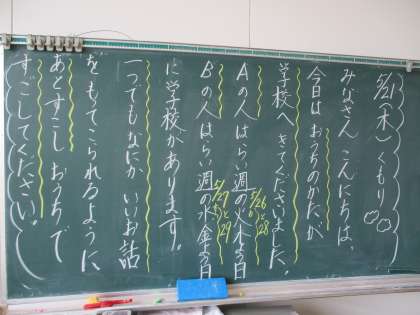 5/21(木)くもり
みなさん こんにちは、
今日は おうちのかた が
学校へ きてくださいました。
Aの人は らい週の火、木よう日
5/26と28
Bの人は らい週の水、金よう日
5/27と29
に 学校が あります。
一つでもなにか いいお話
を もてこられるように
あとすこし おうちで
すごしてください。